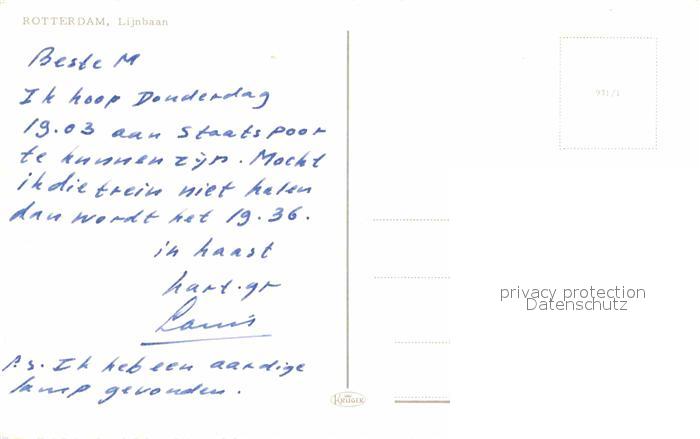 ROTTERDAM, Lijnbaan
Beste M
Ik hoop Donderdag
19.03 aan Staatspoor
te kunnen zijn. Mocht
ik die trein niet halen
dan wordt het 19.36.
in haast
hart. gr
Louis
P.S. Ik heb een aardige
lamp gevonden.
931/1
privacy protection
Datenschutz
KRÜGER